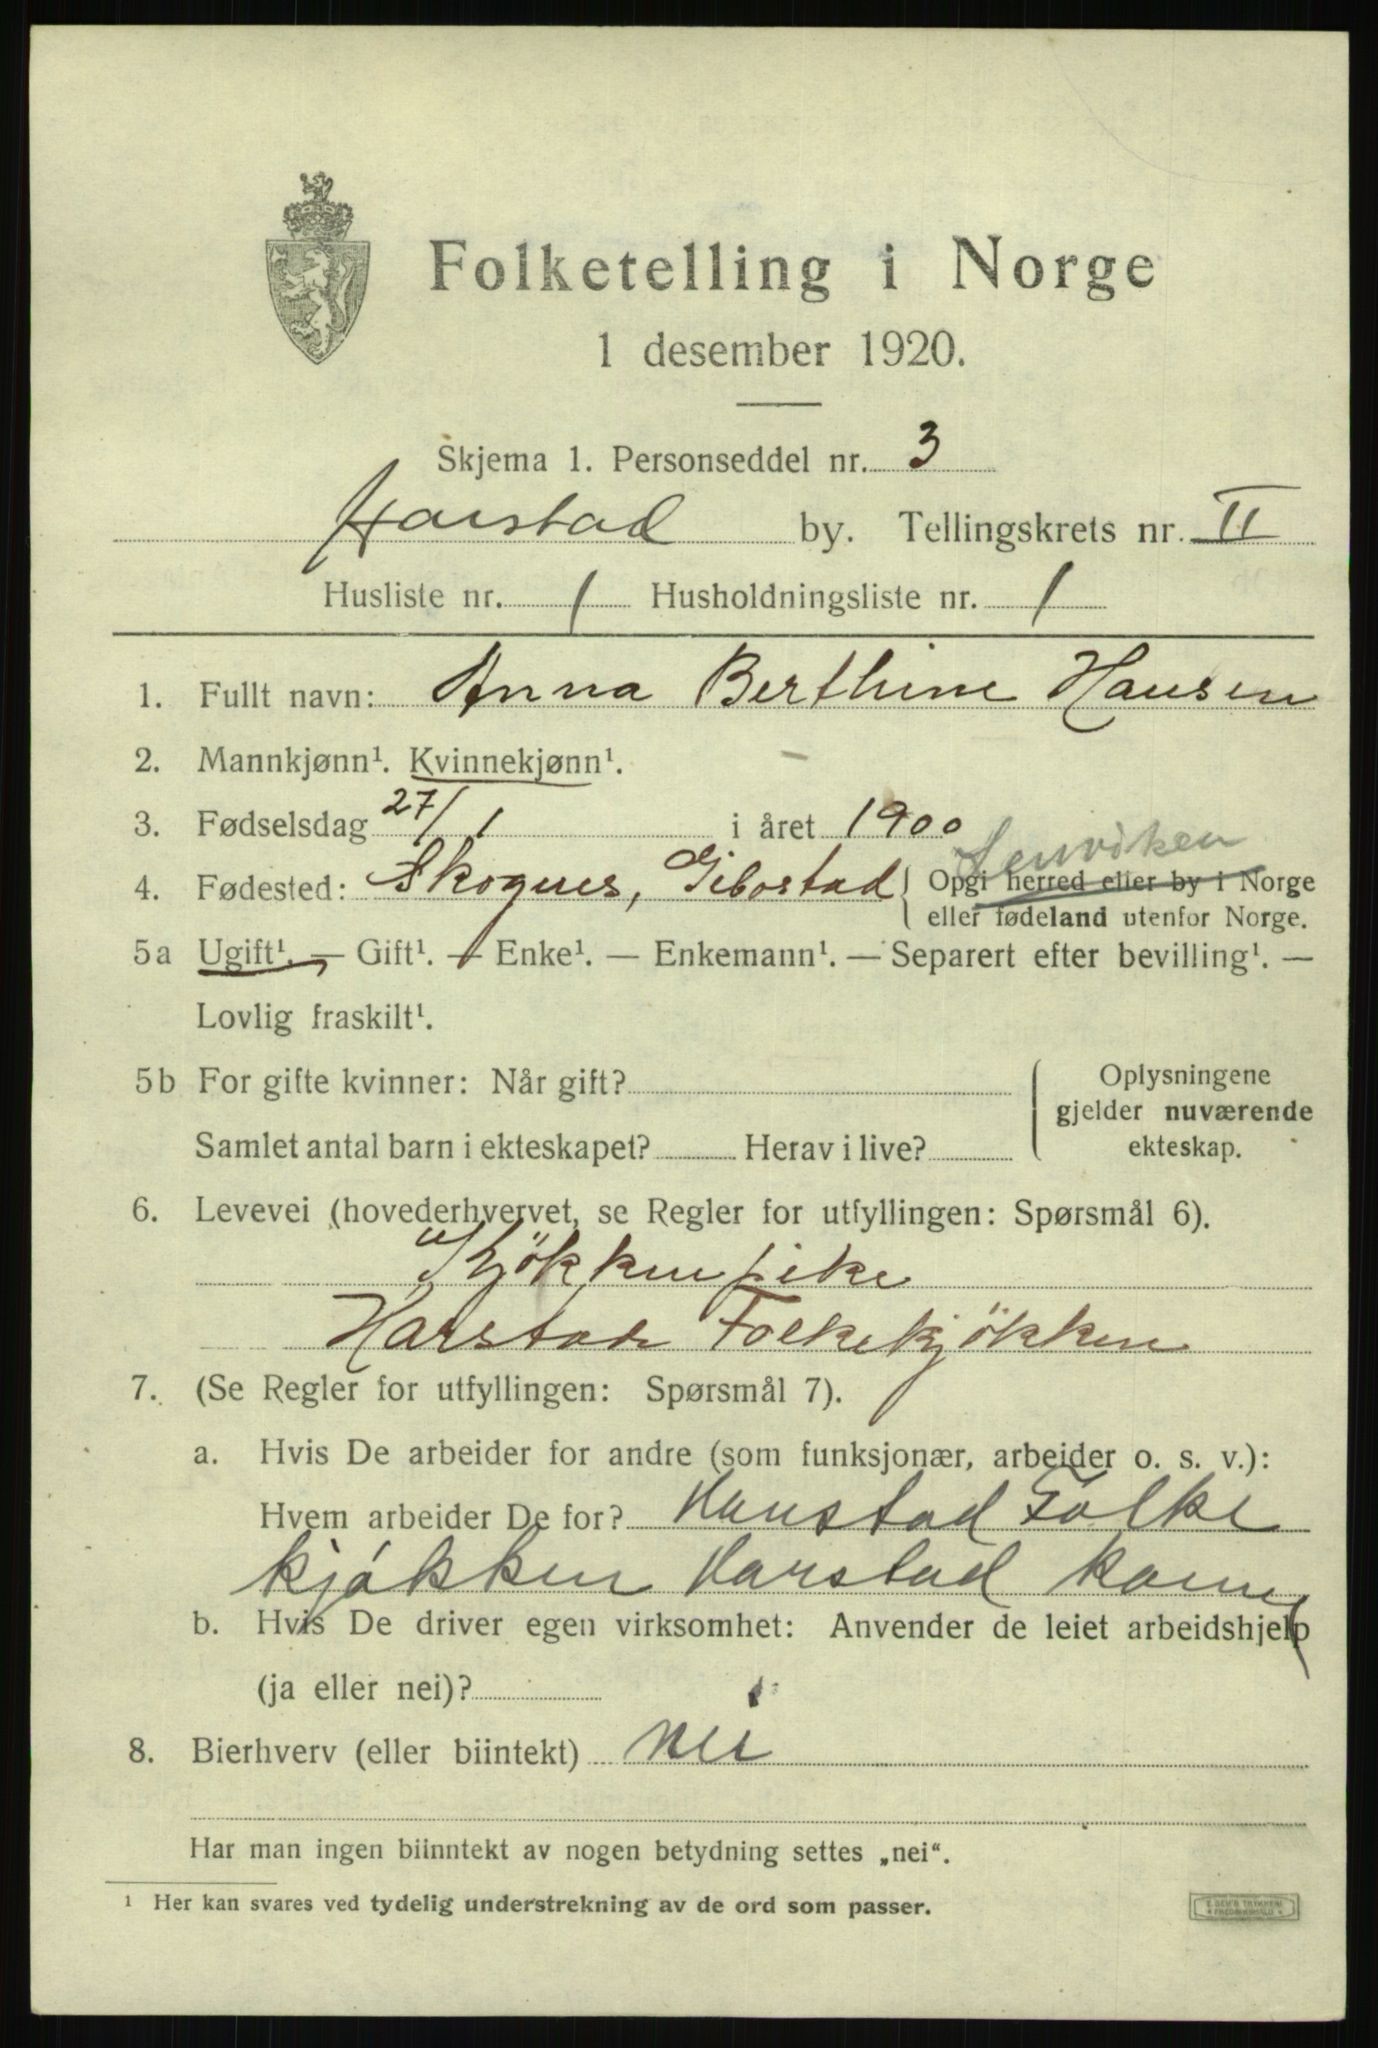 Folketelling i Norge
1 desember 1920.
Skjema 1. Personseddel nr. 3
Harstad by. Tellingskrets nr. II
Husliste nr. 1 Husholdningsliste nr. 1
1. Fullt navn: Anna Berthine Hansen
2. Mannkjønn¹. Kvinnekjønn¹.
3. Fødselsdag 27/1 i året 1900
Lenviken
4. Fødested: Skognes, Gibostad { Opgi herred eller by i Norge
eller fødeland utenfor Norge.
5a Ugift¹. — Gift¹. — Enke¹. — Enkemann¹. — Separert efter bevilling¹. —
Lovlig fraskilt¹.
5b For gifte kvinner: Når gift?
Samlet antal barn i ekteskapet? Herav i live?
{ Oplysningene
gjelder nuværende
ekteskap.
6. Levevei (hovederhvervet, se Regler for utfyllingen: Spørsmål 6).
Kjökkenpike
Harstad Folkekjökken
7. (Se Regler for utfyllingen: Spørsmål 7).
a. Hvis De arbeider for andre (som funksjonær, arbeider o. s. v.):
Hvem arbeider De for? Harstad Folke
kjøkken Harstad kom
b. Hvis De driver egen virksomhet: Anvender de leiet arbeidshjelp
(ja eller nei)?
8. Bierhverv (eller biintekt) nei
Har man ingen biinntekt av nogen betydning settes „nei“.
¹ Her kan svares ved tydelig understrekning av de ord som passer.